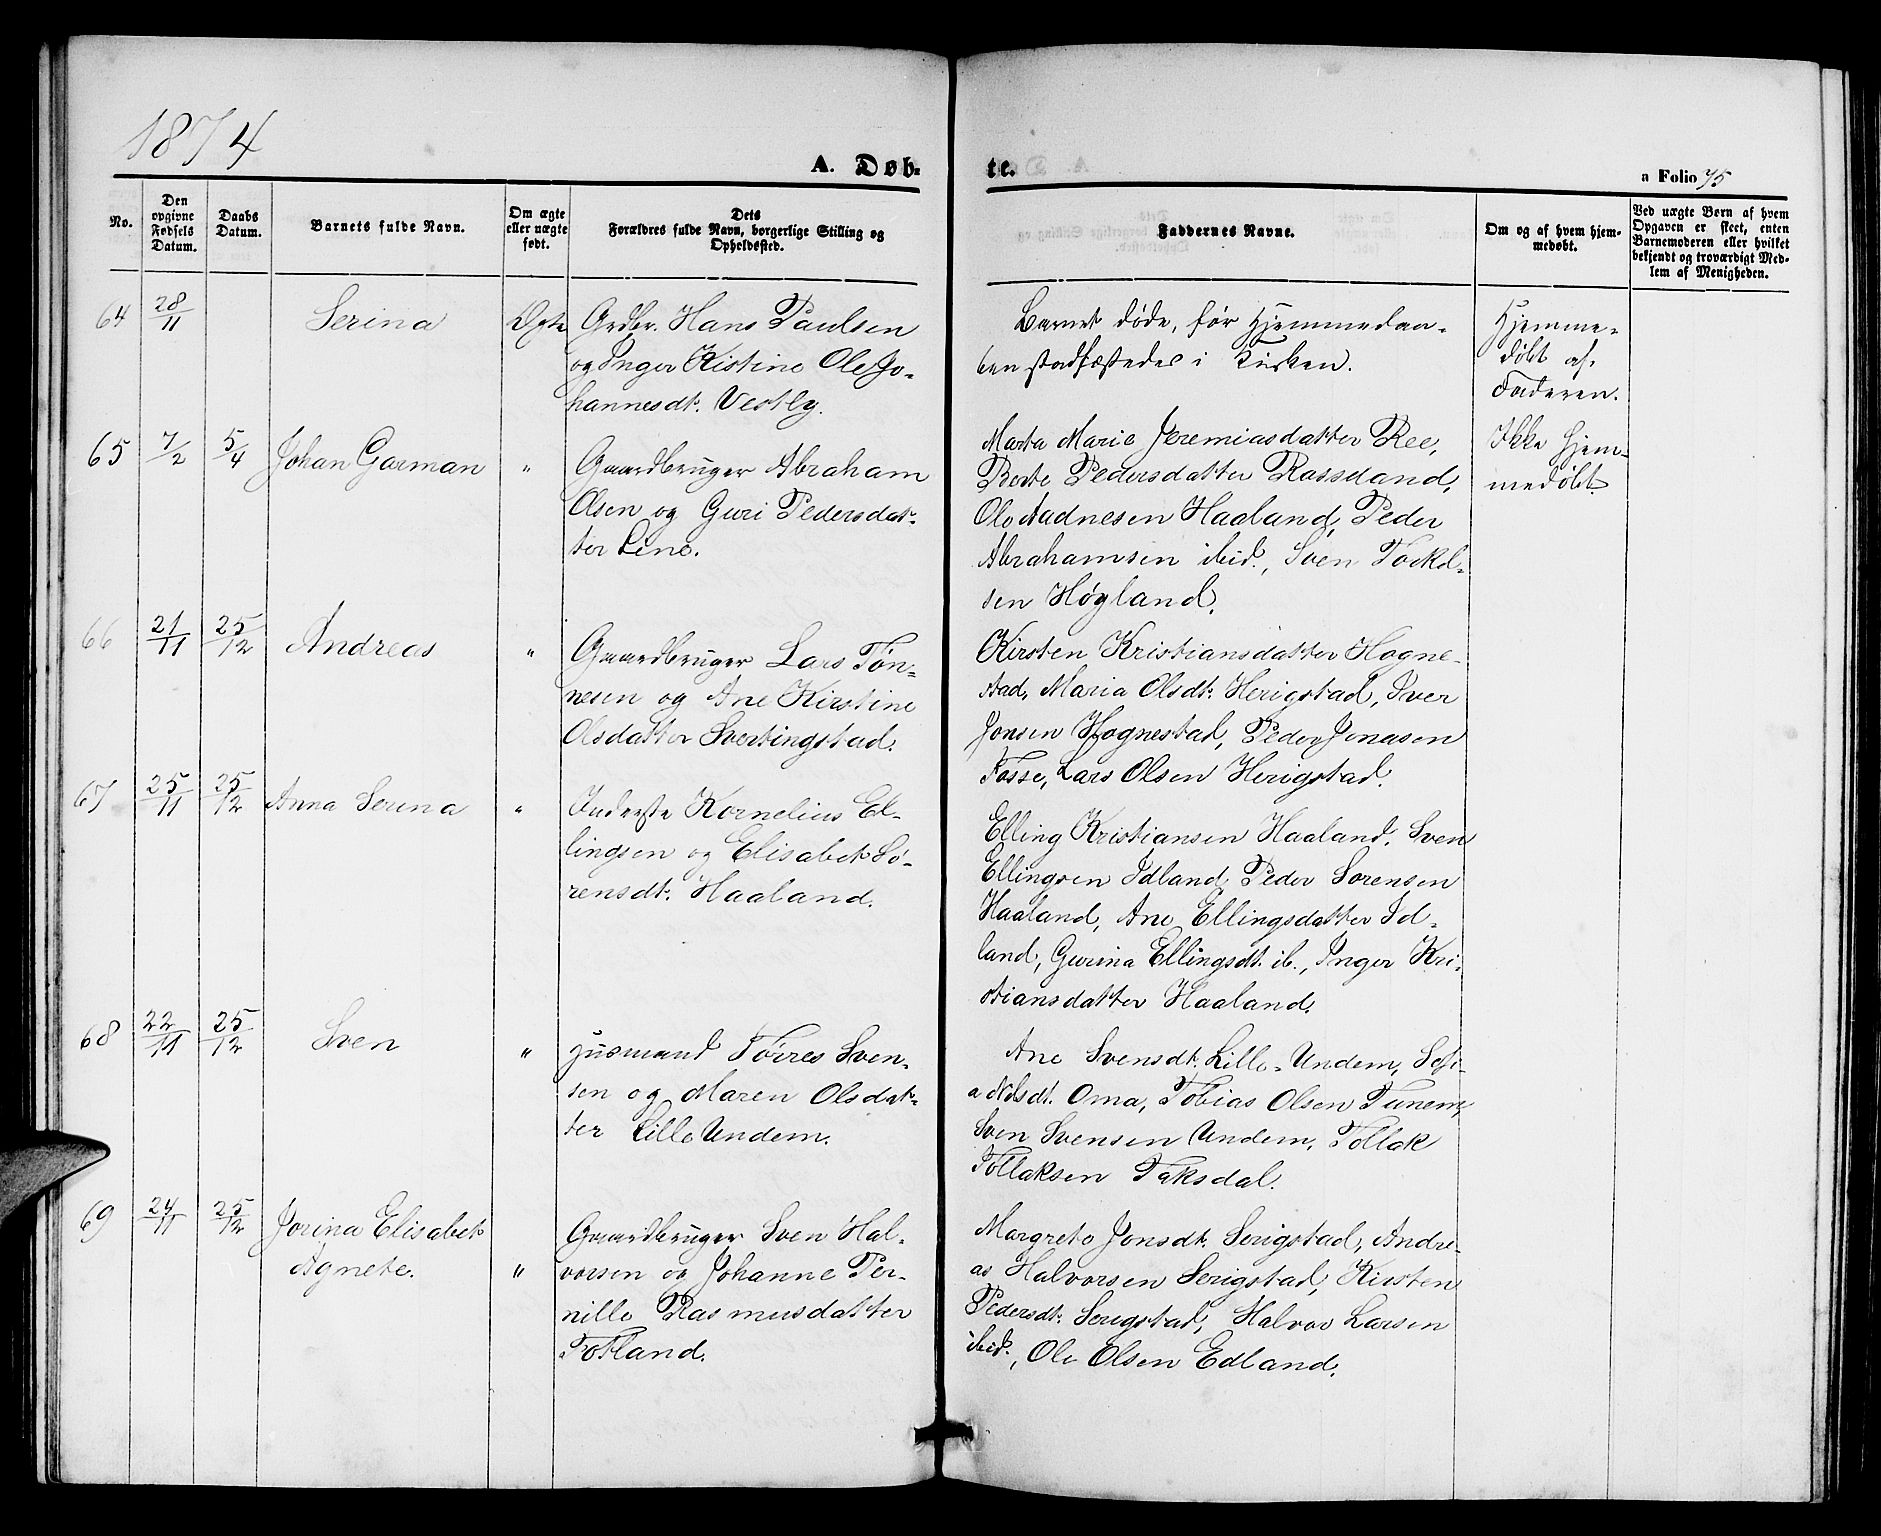 1874
A. Døb-
te.
a Folio 75
No.
Den opgivne Fødsels Datum.
Daabs Datum.
Barnets fulde Navn.
Om ægte eller uægte født.
Dets Forældres fulde Navn, borgerlige Stilling og Opholdssted.
Faddernes Navne.
Om og af hvem hjem-
medøbt.
Ved uægte Børn af hvem
Opgaven er skeet, enten
Barnemoderen eller hvilket
bekjendt og troværdigt Med-
lem af Menigheden.
64 28/11 Serina Ægte
Grdbr. Hans Paulsen
og Inger Kistine Ole Jo-
hannesdt. Vestly.
Barnet døde, før Hjemmedaa-
ben stadfæstedes i Kirken.
Hjemme-
døbt af
Faderen.
65 7/2 5/4 Johan Garman "
Gaardbruger Abraham
Olsen og Guri Pedersdat-
ter Lene.
Marta Marie Jeremiasdatter Ree,
Berte Pedersdatter Rossdand,
Ole Aadnesen Haaland, Peder
Abrahamsen ibid., Sven Torkel-
sen Høyland.
Ikke hjem-
medøbt.
66 21/11 25/12 Andreas "
Gaardbruger Lars Tøn-
nesen og Ane Kirstine
Olsdatter Svertingstad.
Kirsten Kristiansdatter Hogne-
stad, Maria Olsdt. Herigstad, Iver
Jonsen Hognestad, Peder Jonasen
Fosse, Lars Olsen Herigstad.
67 25/11 25/12 Anna Serina "
Inderste Kornelius El-
lingsen og Elisabet Sø-
rensdt. Haaland.
Elling Kristiansen Haaland, Sven
Ellingsen Idland, Peder Sorensen
Haaland, Ane Ellingsdatter Id-
land, Gurina Ellingsdt. ib., Inger Kri-
stiansdatter Haaland.
68 22/11 25/12 Sven "
Husmand Tørres Sven-
sen og Maren Olsdat-
ter Lille Undem.
Ane Svensdt. Lille-Undem, Sofi-
a Nilsdt. Oma, Tobias Olsen Tunem,
Sven Svensen Undem, Tollak
Tollaksen Taksdal.
69 24/11 25/12 Jorina Elisabet
Agnete. "
Gaardbruger Sven Hal-
vorsen og Johanne Per-
nille Rasmusdatter
Totland.
Margrete Jonsdt. Serigstad, Andre-
as Halvorsen Serigstad, Kirsten
Pedersdt. Serigstad, Halvor Larsen
ibid., Ole Olsen Edland.